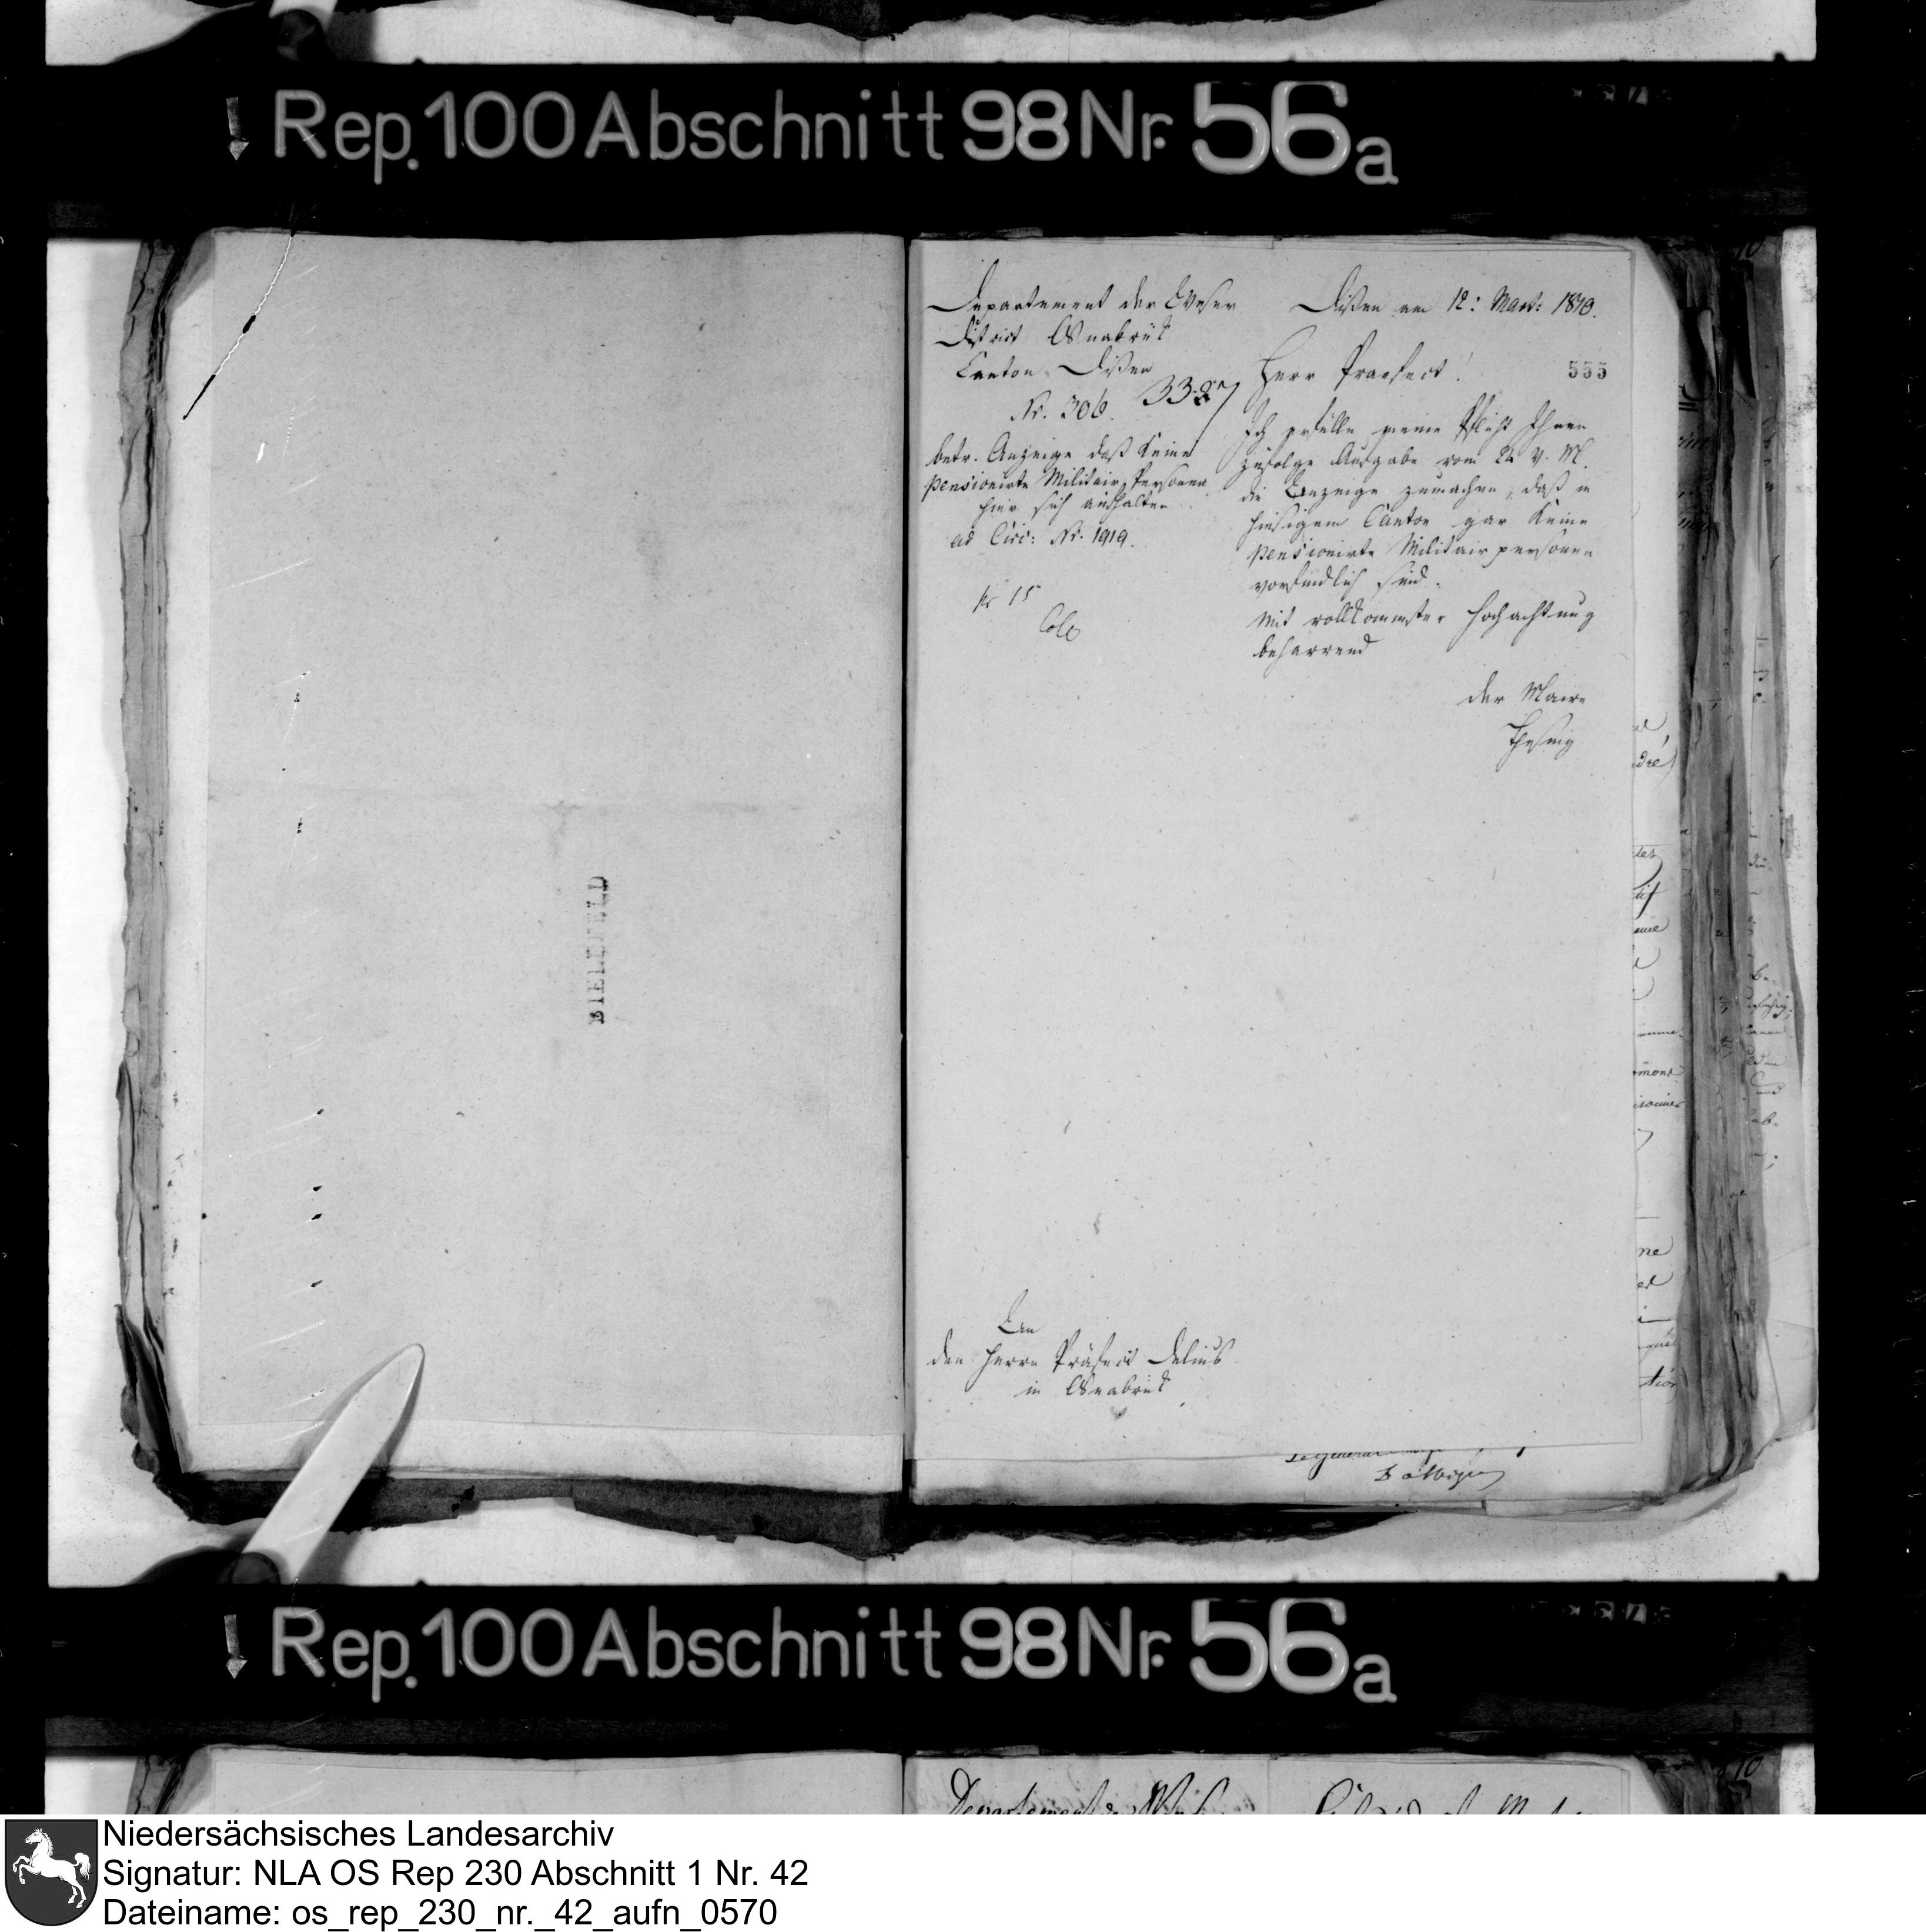 Rep. 100 Abschnitt 98 Nr. 56a
Departement der Weser
District Osnabrük
Canton Dißen
Nr. 306. 3387
betr. Anzeige daß keine
pensionirte Militair Personen
hier sich aufhalten
ad Circ: Nr. 1919.
Dißen am 12: Mart: 1810.
555
Herr Praefect!
Ich erfülle meine Pflicht Ihnen
zufolge Aufgabe vom 24 v. M.
die Anzeige zumachen, daß in
hiesigem Canton gar keine
pensionirte Militairpersonen
vorfindlich sind.
Mit vollkommster Hochachtung
beharrend
der Maire
An
den Herrn Präfect Delius
in Osnabrük
BIELEFELD
Rep. 100 Abschnitt 98 Nr. 56a
Niedersächsisches Landesarchiv
Signatur: NLA OS Rep 230 Abschnitt 1 Nr. 42
Dateiname: os_rep_230_nr._42_aufn_0570